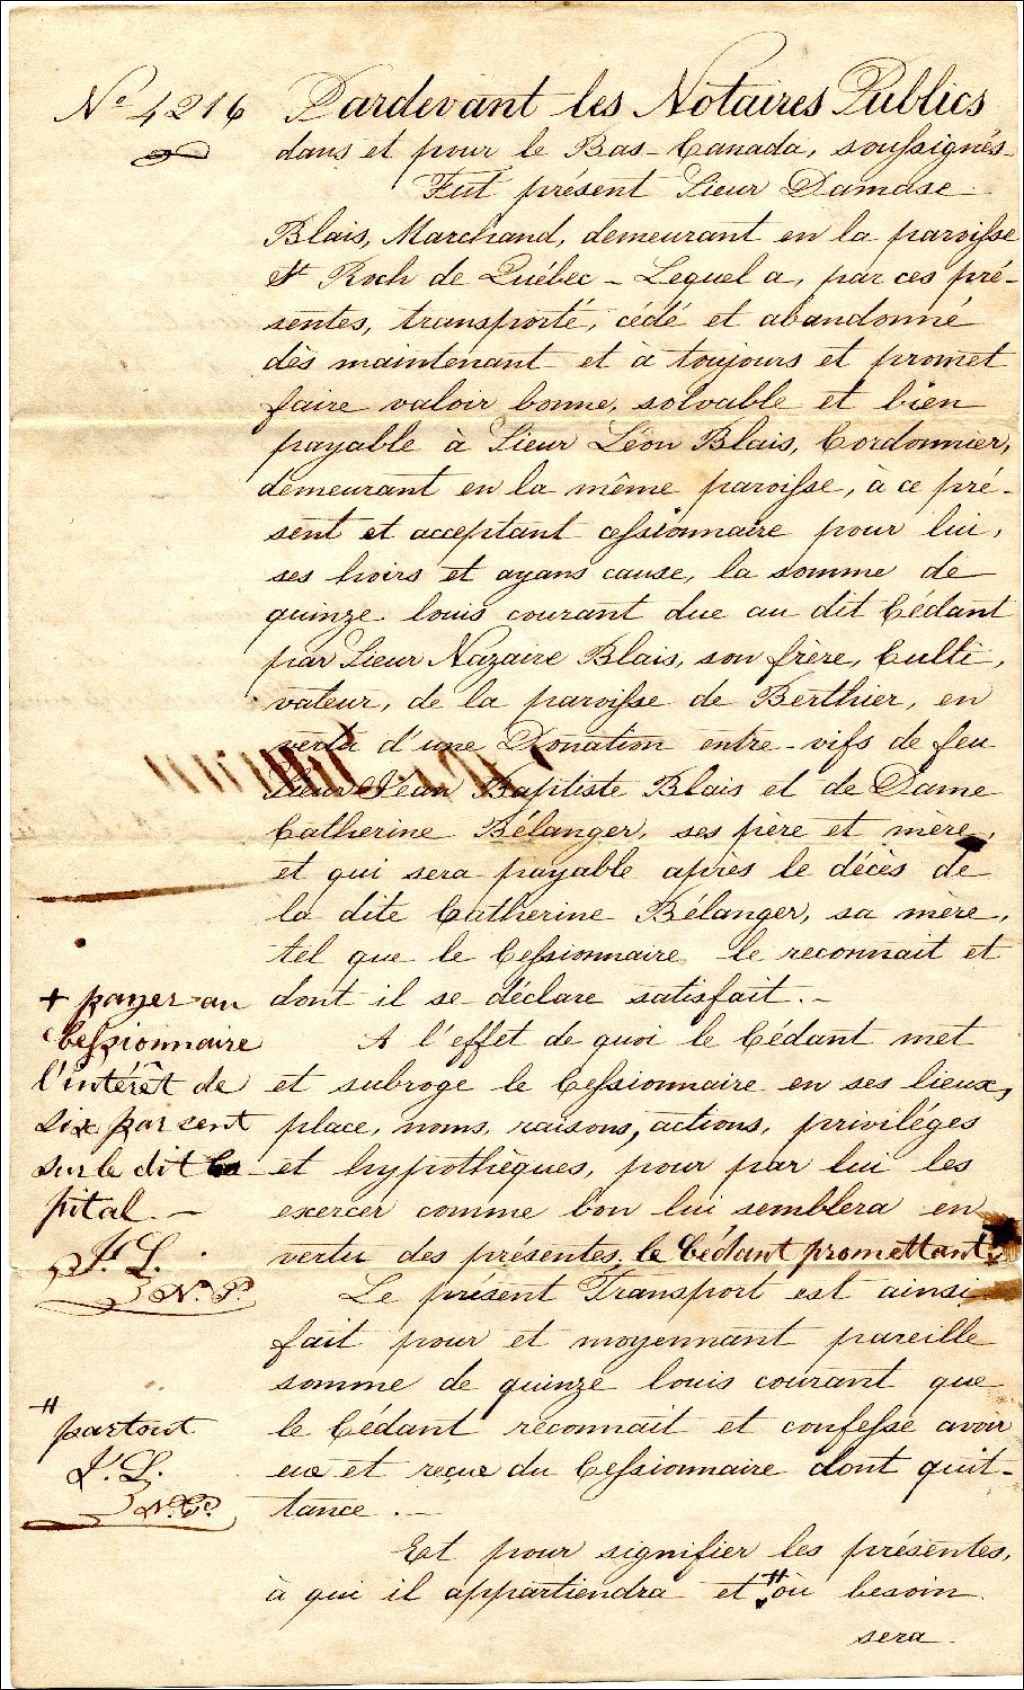 No 4216 Pardevant les Notaires Publics
dans et pour le Bas-Canada, soussignés-
Fut présent Sieur Damase
Blais, Marchand, demeurant en la paroisse
St Roch de Québec - Lequel a, par ces pré-
sentes, transporté, cédé et abandonné
dès maintenant et à toujours et promet
faire valoir bonne, solvable et bien
payable à Sieur Léon Blais, Cordonnier,
demeurant en la même paroisse, à ce pré-
sent et acceptant cessionnaire pour lui,
ses hoirs et ayans cause, la somme de
quinze louis courant due au dit Cédant
par Sieur Nazaire Blais, son frère, Culti,
vateur, de la paroisse de Berthier, en
vertu d'une Donation entre-vifs de feu
Sieur Jean Baptiste Blais et de Dame
Catherine Bélanger, ses père et mère,
et qui sera payable après le décès de
la dite Catherine Bélanger, sa mère,
tel que le Cessionnaire le reconnait et
dont il se déclare satisfait. -
A l'effet de quoi le Cédant met
et subroge le Cessionnaire en ses lieux,
place, noms, raisons, actions, priviléges
et hypothèques, pour par lui les
exercer comme bon lui semblera en
vertu des présentes, le Cédant promettant +
Le présent Transport est ainsi
fait pour et moyennant pareille
somme de quinze louis courant que
le Cédant reconnait et confesse avoir
eue et reçue du Cessionnaire dont quit-
tance. -
Et pour signifier les présentes,
à qui il appartiendra et # où besoin
sera -
+ payer au
Cessionnaire
l'intérêt de
six par cent
sur le dit Ca
pital. -
J. L.
N. P.
# partout
J. L.
N. P.